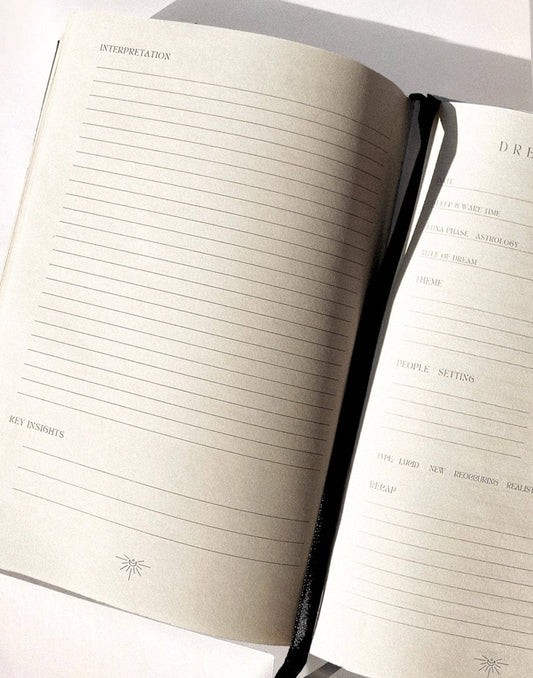 INTERPRETATION
KEY INSIGHTS
DRE
DATE
SLEEP & WAKE TIME
LUNA PHASE ASTROLOGY
TITLE OF DREAM
THEME
PEOPLE SETTING
TYPE LUCID NEW REOCCURING REALIST
RECAP